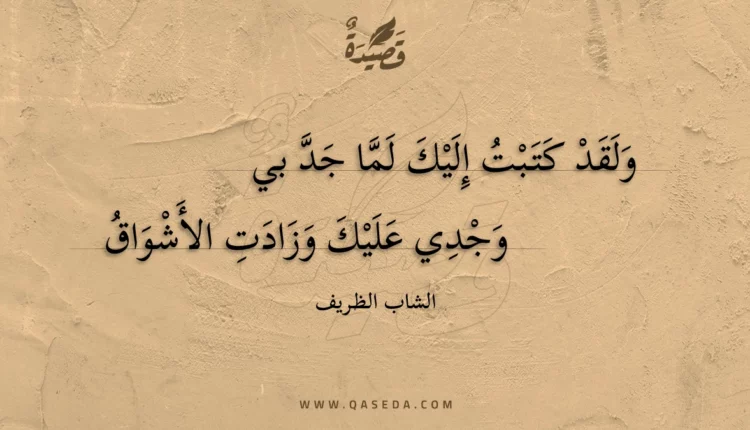 قَصِيْدَةٌ
وَلَقَدْ كَتَبْتُ إِلَيْكَ لَمَّا جَدَّ بي
وَجْدِي عَلَيْكَ وَزَادَتِ الأَشْوَاقُ
الشاب الظريف
WWW.QASEDA.COM